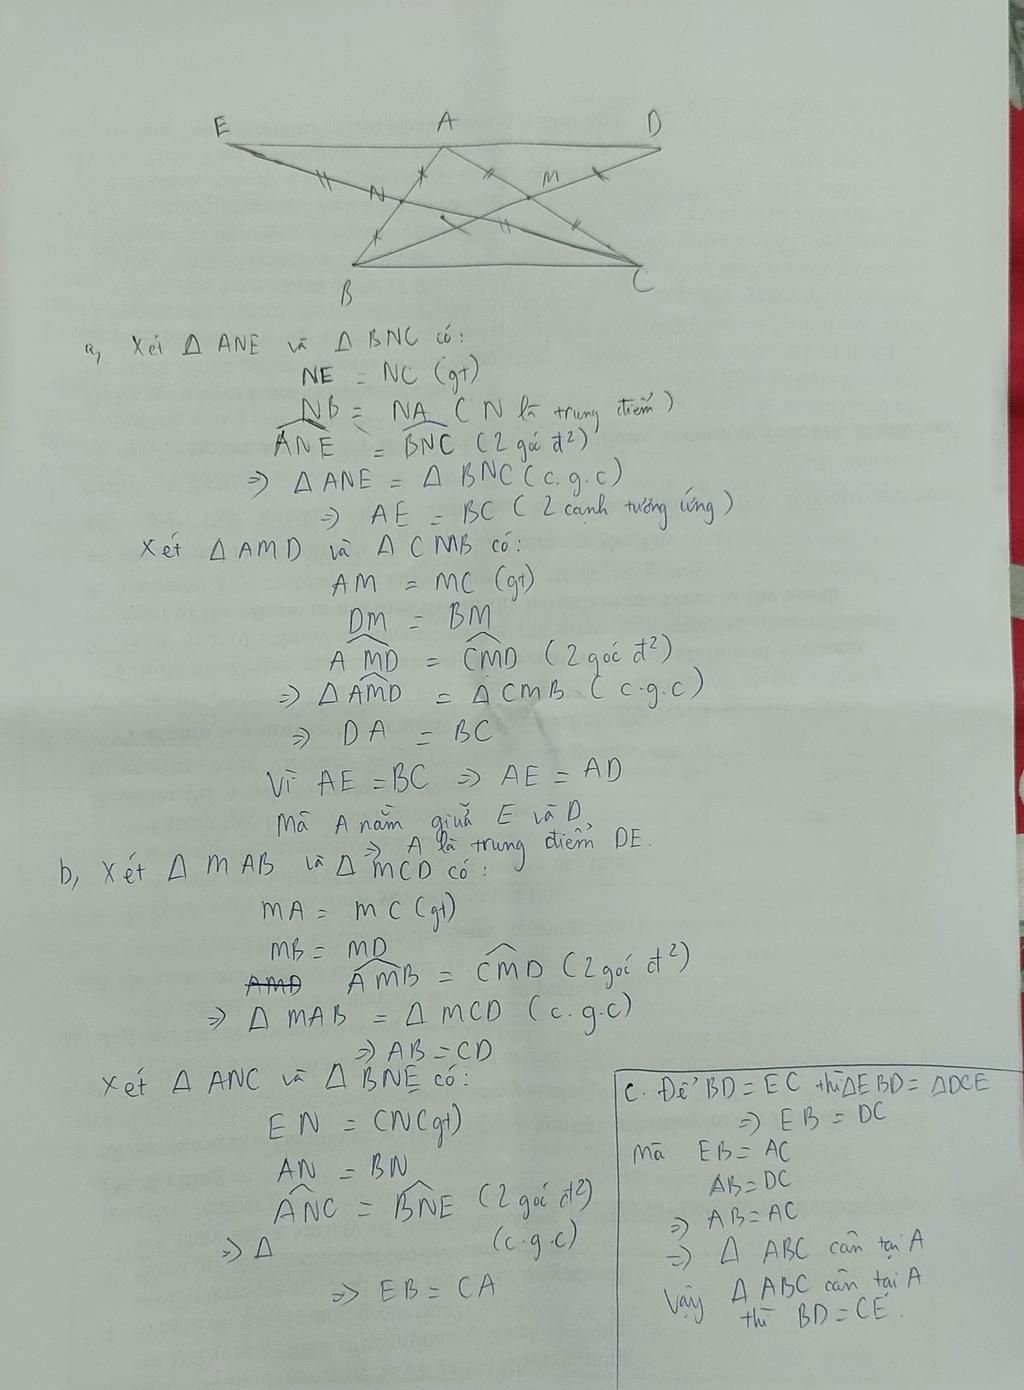 E A D
N M
B C
a, Xét Δ ANE và Δ BNC có:
NE = NC (gt)
NB = NA (N là trung điểm)
ANE = BNC (2 góc đ²)
=> Δ ANE = Δ BNC (c.g.c)
=> AE = BC (2 cạnh tương ứng)
Xét Δ AMD và Δ CMB có:
AM = MC (gt)
DM = BM
AMD = CMD (2 góc đ²)
=> Δ AMD = Δ CMB (c.g.c)
=> DA = BC
Vì AE = BC => AE = AD
Mà A nằm giữa E và D,
=> A là trung điểm DE.
b, Xét Δ MAB và Δ MCD có:
MA = MC (gt)
MB = MD
AMD AMB = CMD (2 góc đ²)
=> Δ MAB = Δ MCD (c.g.c)
=> AB = CD
Xét Δ ANC và Δ BNE có:
EN = CN (gt)
AN = BN
ANC = BNE (2 góc đ²)
=> Δ (c.g.c)
=> EB = CA
C. Để BD = EC thì ΔEBD = ΔDCE
=> EB = DC
Mà EB = AC
AB = DC
=> AB = AC
=> Δ ABC cân tại A
Vậy Δ ABC cân tại A
thì BD = CE.